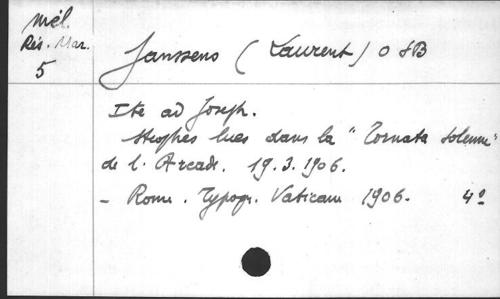 Mél.
Rés. Mar.
5
Janssens (Laurent) O SB
Ite ad Joseph.
Strophes lues dans la "Tornata solenne"
de l'Arcad. 19.3.1906.
- Rome. Typogr. Vaticane 1906. 4º